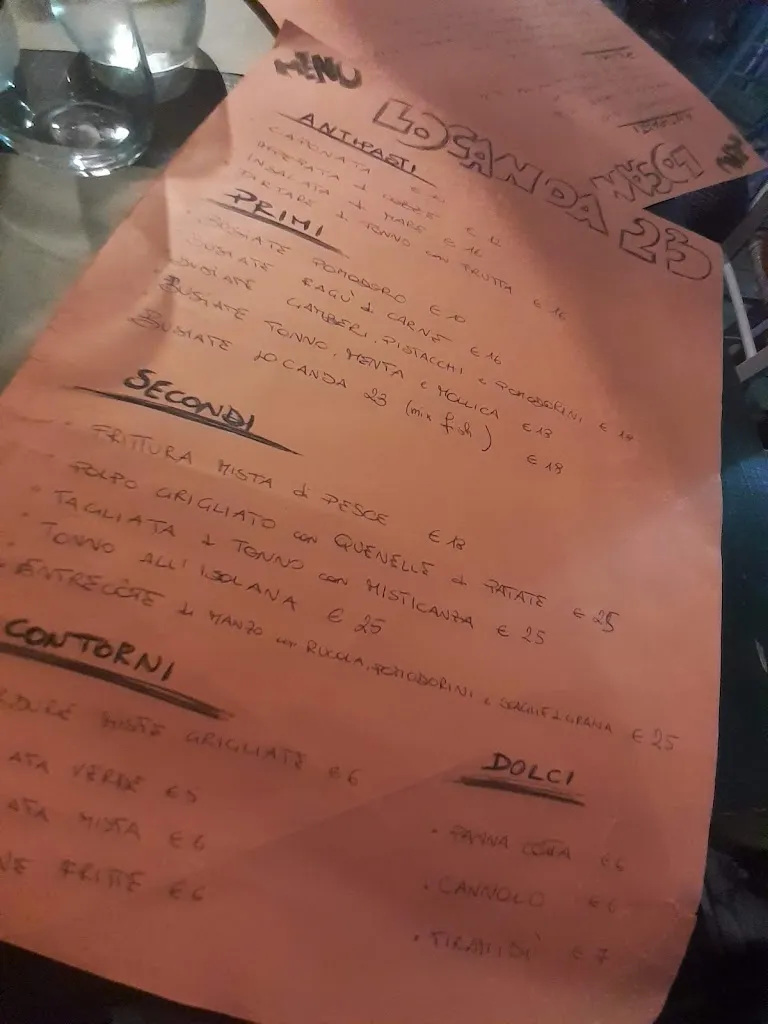 MENU
LOCANDA 23
ANTIPASTI
CAPONATA €
PEPATA di COZZE € 12
INSALATA di MARE € 16
TARTARE di TONNO con FRUTTA € 16
PRIMI
BUSIATE POMODORO € 10
BUSIATE RAGÙ di CARNE € 16
BUSIATE GAMBERI, PISTACCHI e POMODORINI € 18
BUSIATE TONNO, MENTA e MOLLICA € 18
BUSIATE LOCANDA 23 (mix fish) € 18
SECONDI
FRITTURA MISTA di PESCE € 18
POLPO GRIGLIATO con QUENELLE di PATATE € 25
TAGLIATA di TONNO con MISTICANZA € 25
TONNO ALL'ISOLANA € 25
ENTRECÔTE di MANZO con RUCOLA, POMODORINI e SCAGLIE di GRANA € 25
CONTORNI
MISTE GRIGLIATE € 6
ATA VERDE € 5
ATA MISTA € 6
NE FRITTE € 6
DOLCI
PANNA COTTA € 6
CANNOLO € 6
TIRAMISÙ € 7